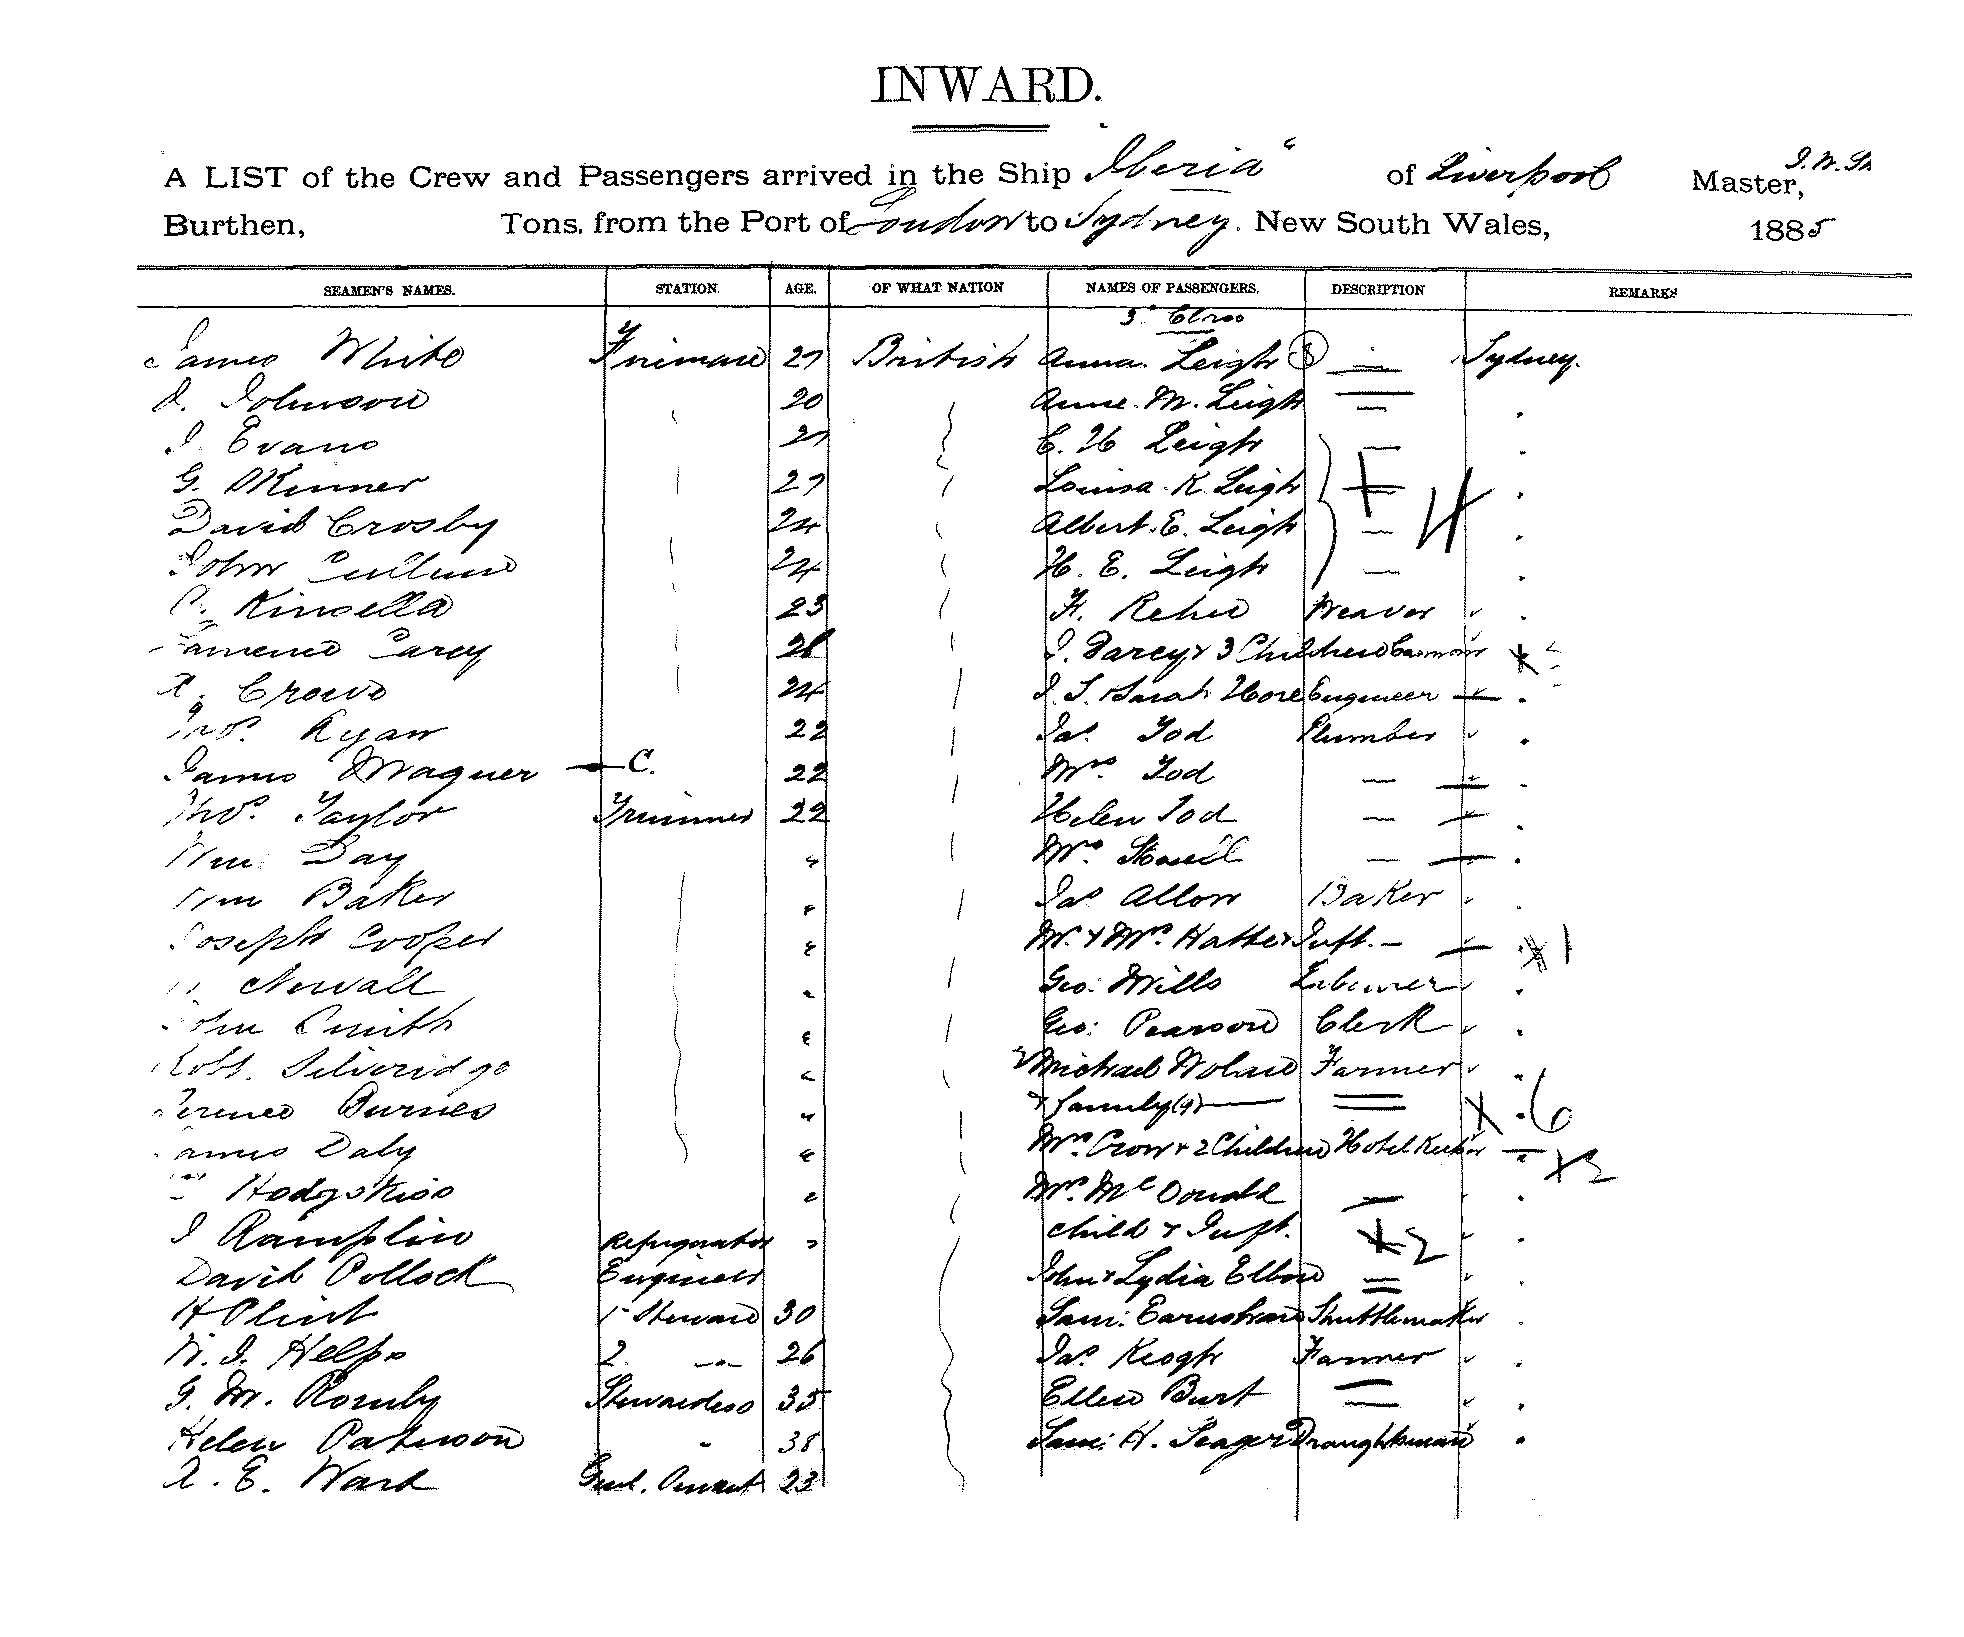 INWARD.
A LIST of the Crew and Passengers arrived in the Ship "Iberia" of Liverpool Master, J. W.
Burthen, Tons, from the Port of London to Sydney. New South Wales, 1885
SEAMEN'S NAMES. STATION. AGE. OF WHAT NATION NAMES OF PASSENGERS. DESCRIPTION REMARKS
3 Class
James White Fireman 27 British Anna Leigh Sydney.
J. Johnson 20 Annie M. Leigh —
J. Evans 27 C. H Leigh —
G. Skinner 27 Louisa K. Leigh —
David Crosby 24 Albert. E. Leigh —
John 24 H. E. Leigh —
Kinsella 23 H. Weaver
Carey 26 J. Darcy & 3 Children
Crowe 24 J. S. Sarah Hore Engineer
Thos. Ryan 22 Jas Tod Plumber
James Wagner C. 22 Mrs Tod —
Thos. Taylor Trimmer 22 Helen Tod —
Wm. Day " Mrs —
Wm Baker " Jas Allon Baker
Joseph Cooper " Mr & Mrs. Hatte & Inft. — X1
Newall " Geo: Mills Labourer
John Smith " Geo: Pearson Clerk
Robt. Silveridge " Michael Nolan Farmer
Terence Burnes " & family (9) X 6
James Daly " Mrs Crow & 2 Children Hotel Keeper X2
Hodgskiss " Mrs. McDonald —
J Ramplin Refrigerator " child & Inft. X2
David Pollock Engineer John & Lydia Elbow
H Plint 1 Steward 30 Sam: Earnshaw Shuttlemaker
W. J. Helps 2 —"— 26 Jas Keogh Farmer
G. M. Stewardess 35 Ellen Burt
Helen Paterson " 38 Sam: H. Seager Draughtsman
A. E. Ward Genl. Servant 23